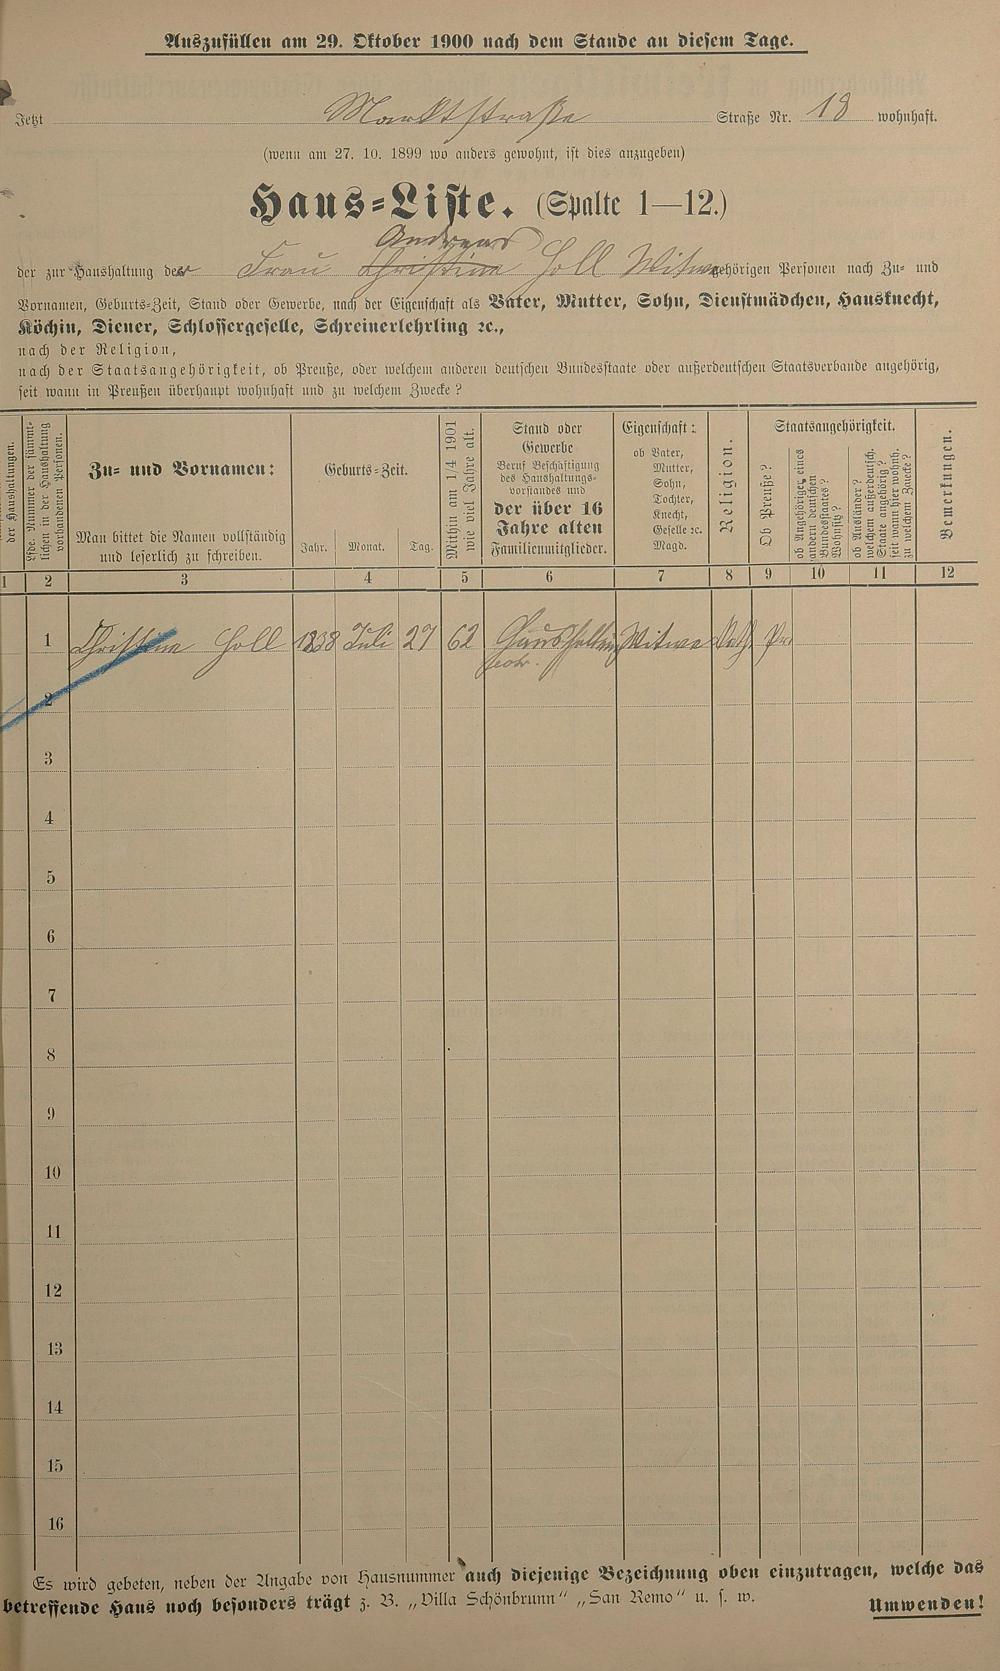 Auszufüllen am 29. Oktober 1900 nach dem Stande an diesem Tage.
Jetzt Marktstraße Straße Nr. 18 wohnhaft.
(wenn am 27. 10. 1899 wo anders gewohnt, ist dies anzugeben)
Haus-Liste. (Spalte 1—12.)
Andreas
der zur Haushaltung der Frau Christine Holl Witwe gehörigen Personen nach Zu- und
Vornamen, Geburts-Zeit, Stand oder Gewerbe, nach der Eigenschaft als Vater, Mutter, Sohn, Dienstmädchen, Hausknecht,
Köchin, Diener, Schlossergeselle, Schreinerlehrling ꝛc.,
nach der Religion,
nach der Staatsangehörigkeit, ob Preuße, oder welchem anderen deutschen Bundesstaate oder außerdeutschen Staatsverbande angehörig,
seit wann in Preußen überhaupt wohnhaft und zu welchem Zwecke?
der Haushaltungen.
Lfde. Nummer der sämmt-
lichen in der Haushaltung
vorhandenen Personen.
Zu- und Vornamen:
Man bittet die Namen vollständig
und leserlich zu schreiben.
Geburts-Zeit.
Jahr. Monat. Tag.
Mithin am 1/4 1901
wie viel Jahre alt.
Stand oder
Gewerbe
Beruf Beschäftigung
des Haushaltungs-
vorstandes und
der über 16
Jahre alten
Familienmitglieder.
Eigenschaft:
ob Vater,
Mutter,
Sohn,
Tochter,
Knecht,
Geselle ꝛc.
Magd.
Religion.
Staatsangehörigkeit.
Ob Preuße?
ob Angehöriger eines
andern deutschen
Bundesstaates?
Wohnsitz?
ob Ausländer?
welchem außerdeutsch.
Staate angehörig?
seit wann hier wohnh.
zu welchem Zwecke?
Bemerkungen.
1 2 3 4 5 6 7 8 9 10 11 12
1 Christine Holl 1838 Juli 27 62 Witwe Kath. Pr
2
3
4
5
6
7
8
9
10
11
12
13
14
15
16
Es wird gebeten, neben der Angabe von Hausnummer auch diejenige Bezeichnung oben einzutragen, welche das
betreffende Haus noch besonders trägt z. B. „Villa Schönbrunn“ „San Remo“ u. s. w.
Umwenden!